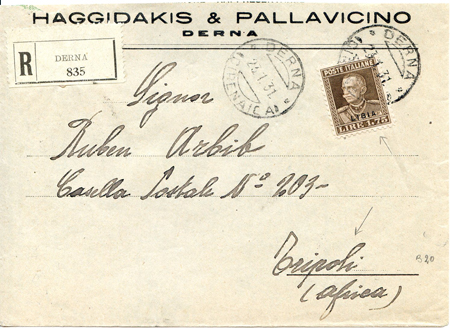 HAGGIDAKIS & PALLAVICINO
DERNA
R
DERNA
835
DERNA
23.1.31.
(CIRENAICA)
DERNA
23.1.31
POSTE ITALIANE
LIBIA
LIRE 1,75
Signor
Ruben Arbib
Casella Postale Nº 203-
Tripoli
(Africa)